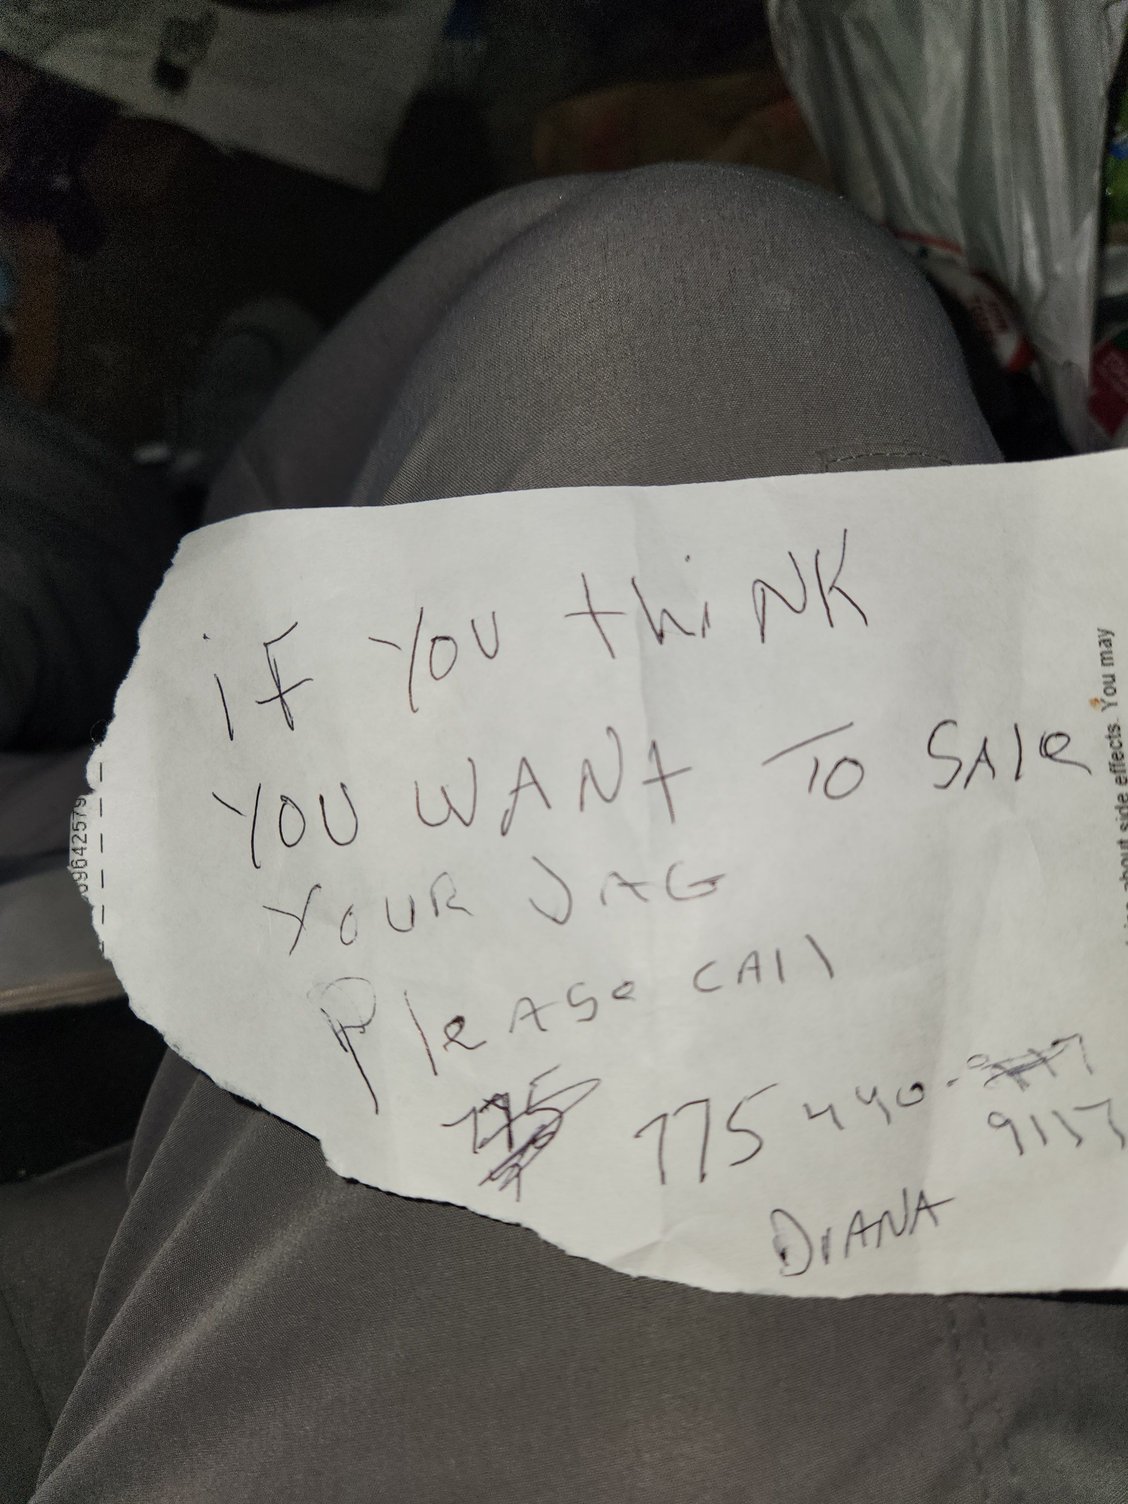 iF YOU thiNK
YOU WANt TO SAle
YOUR JAG
PleASe CAll
775 440-
9157
DiANA
about side effects. You may
09642579